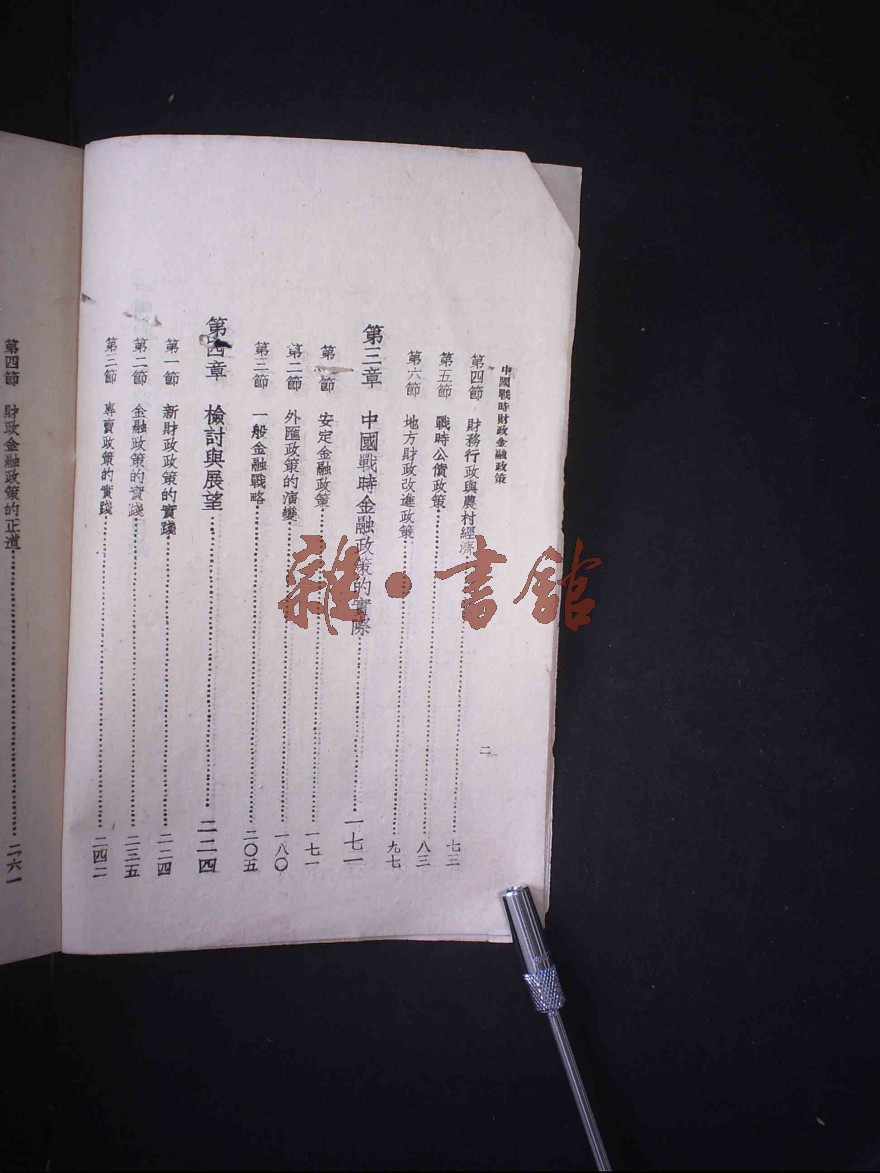 中國戰時財政金融政策
二
第四節 財務行政與農村經濟……七三
第五節 戰時公債政策……八三
第六節 地方財政改進政策……九七
第三章 中國戰時金融政策的實際……一七一
第一節 安定金融政策……一七一
第二節 外匯政策的演變……一八〇
第三節 一般金融戰略……二〇五
第四章 檢討與展望……二二四
第一節 新財政政策的實踐……二二四
第二節 金融政策的實踐……二三五
第三節 專賣政策的實踐……二四二
第四節 財政金融政策的正道……二六一
雜·書館